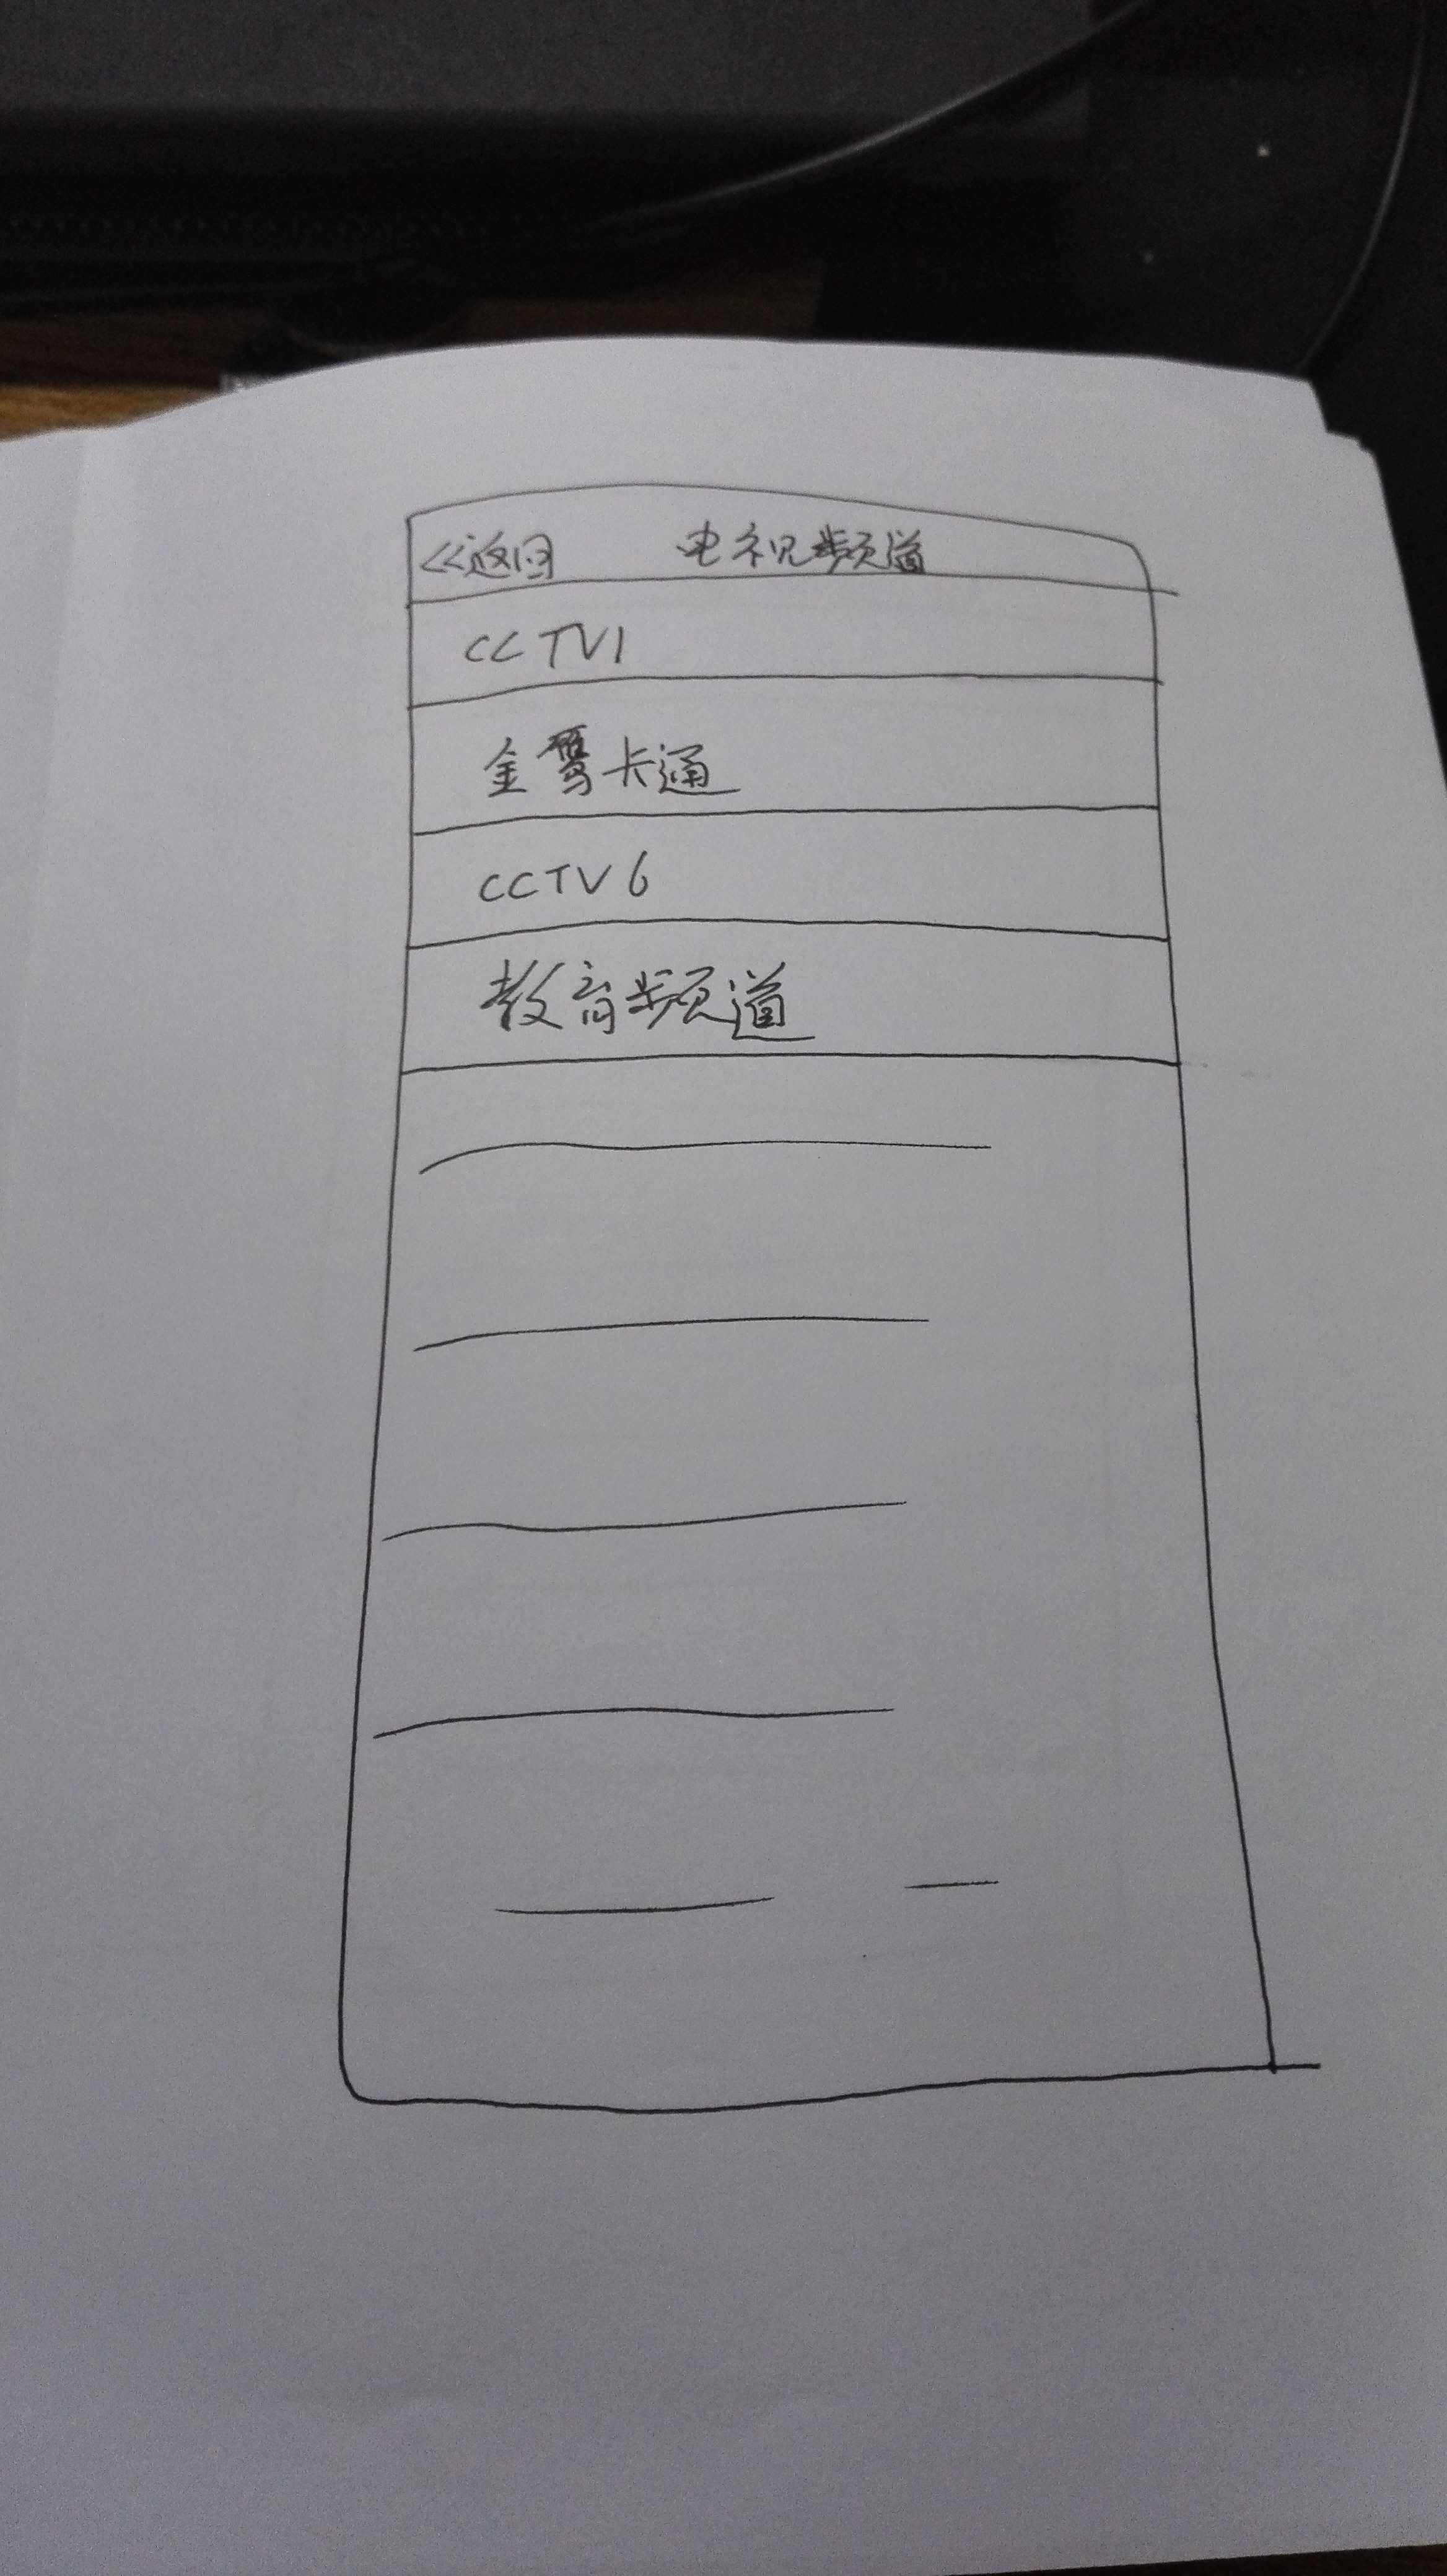 <<返回 电视频道
CCTV1
金鹰卡通
CCTV6
教育频道